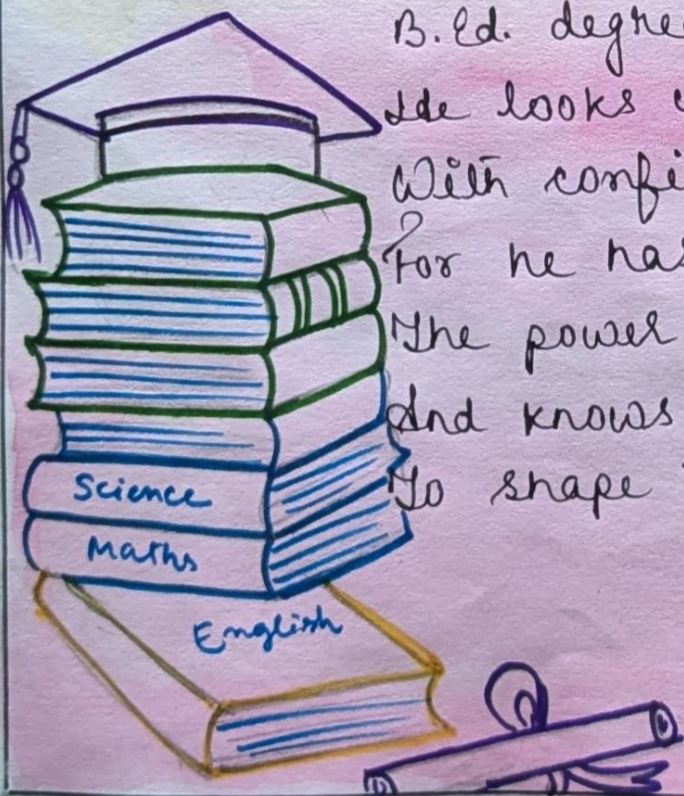 B.Ed. degre
He looks
With confi
For he has
The power
And knows
To shape
Science
Maths
English